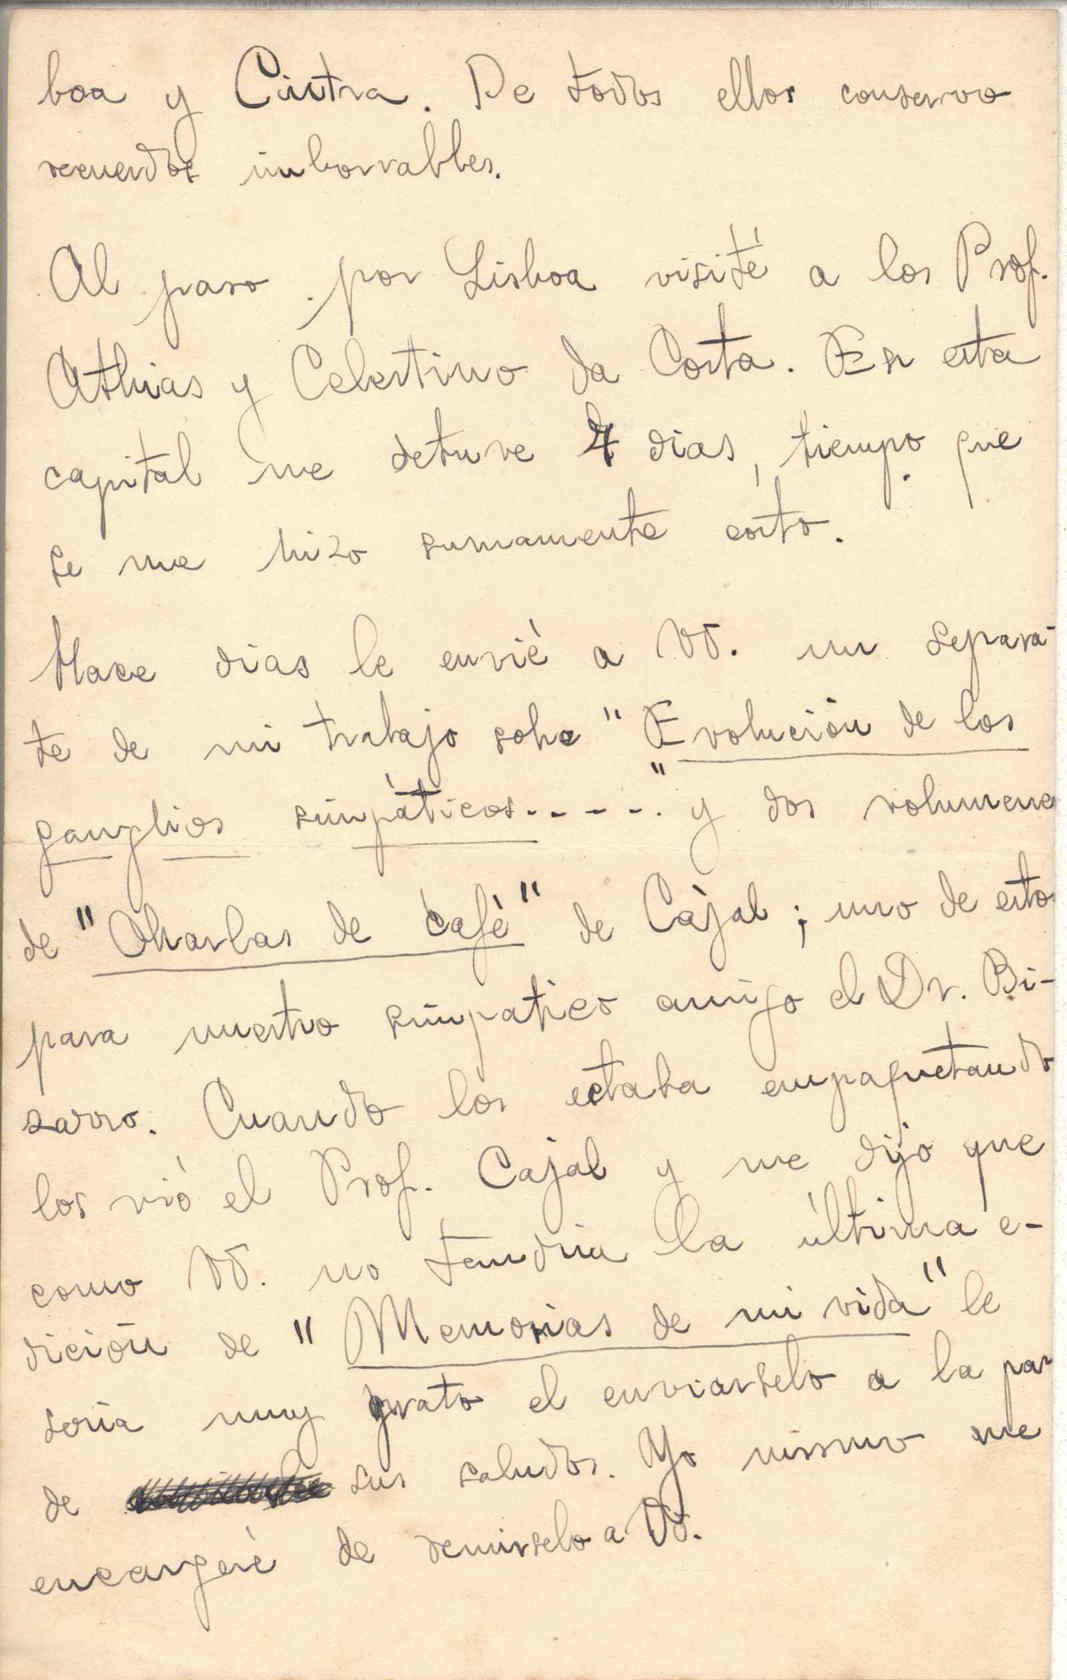 boa y Cintra. De todos ellos conservo
recuerdos imborrables.
Al paso por Lisboa visité a los Prof.
Athias y Celestino da Costa. En esta
capital me detuve 4 dias, tiempo que
se me hizo sumamente corto.
Hace dias le envié a Vd. un separa-
te de mi trabajo sobre "Evolución de los
ganglios simpáticos-----" y dos volumene
de "Charlas de café" de Cajal; uno de esto
para nuestro simpatico amigo el Dr. Bi-
zarro. Cuando los estaba empaquetando
los vió el Prof. Cajal y me dijo que
como Vd. no tendria la última e-
dición de "Memorias de mi vida" le
seria muy grato el enviarselo a la par
de sus saludos. Yo mismo me
encargeré de remirselo a Vd.